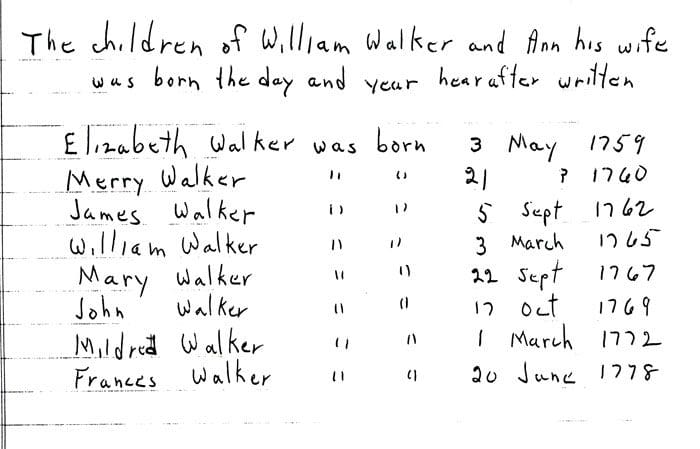 The children of William Walker and Ann his wife
was born the day and year hearafter written
Elizabeth Walker was born 3 May 1759
Merry Walker " " 21 ? 1760
James Walker " " 5 Sept 1762
William Walker " " 3 March 1765
Mary Walker " " 22 Sept 1767
John Walker " " 17 oct 1769
Mildred Walker " " 1 March 1772
Frances Walker " " 20 June 1778